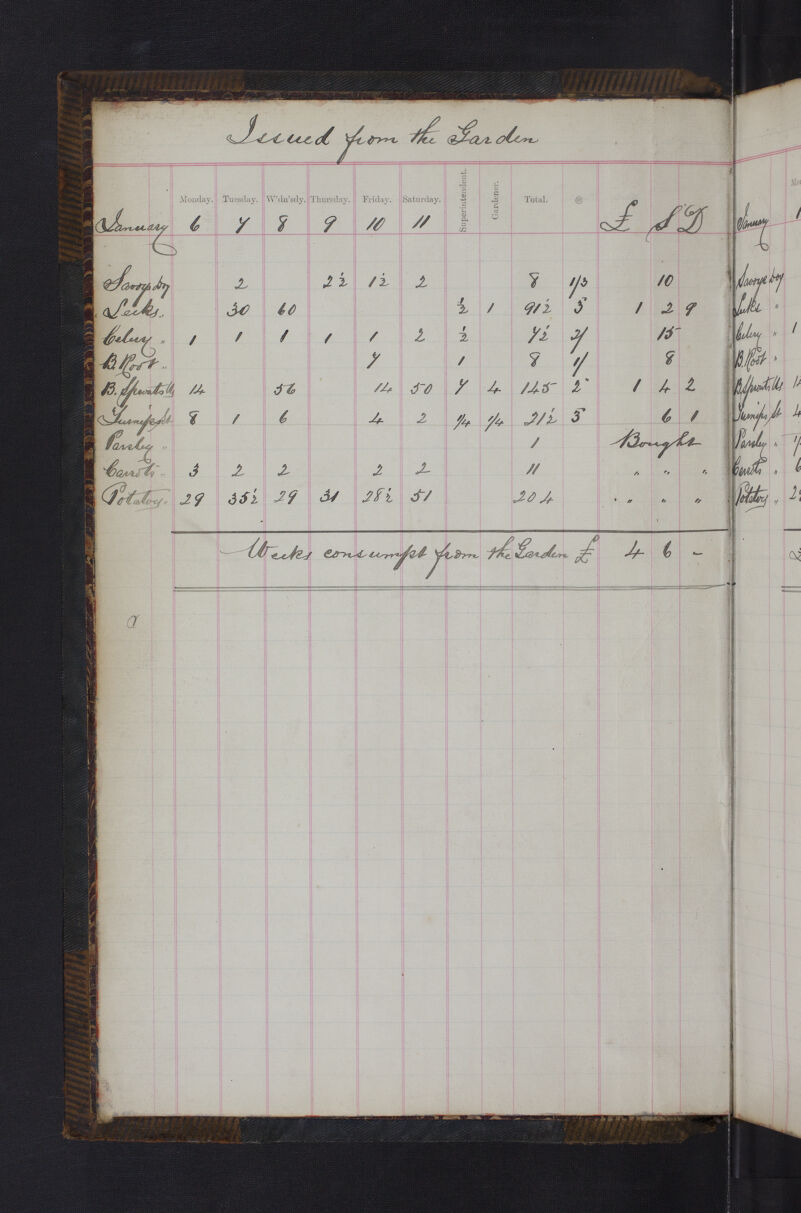 Issued from the Garden
Monday. Tuesday. W'dn'sdy. Thursday. Friday. Saturday. Superintendent. Gardener. Total. @
January 6 7 8 9 10 11 £ S D
Savoys Doz 2 2½ 1½ 2 8 1/3 10
Leeks " 30 60 ½ 1 91½ 3 1 2 9
Celery " 1 1 1 1 1 2 ½ 7½ 2/ 15
B. Root " 7 1 8 1/ 8
B. Sprouts lbs 14 56 14 50 7 4 145 2 1 4 2
Turnips St 8 1 6 4 2 1/4 1/4 21½ 3 6 1
Parsley " 1 Bought
Carrots " 3 2 2 2 2 11 " " "
Potatoes " 29 35½ 29 31 28½ 51 204 " " " "
Weeks consumpt from the Garden £ 4 6 -
January 1
Savoys Doz
Leeks "
Celery " 1
B. Root "
B. Sprouts lbs
Turnips St 4
Parsley "
Carrots " 6
Potatoes " 2